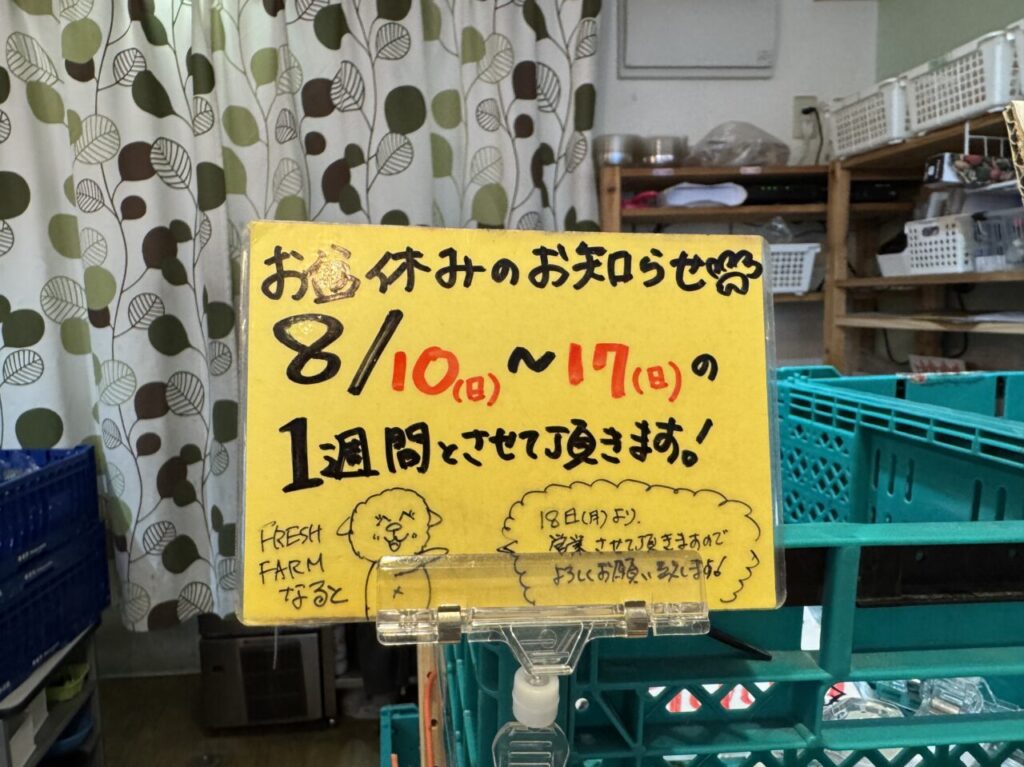 お盆休みのお知らせ
8/10(日)〜17(日)の
1週間とさせて頂きます!
FRESH
FARM
なると
18日(月)より、
営業させて頂きますので
よろしくお願い致します!